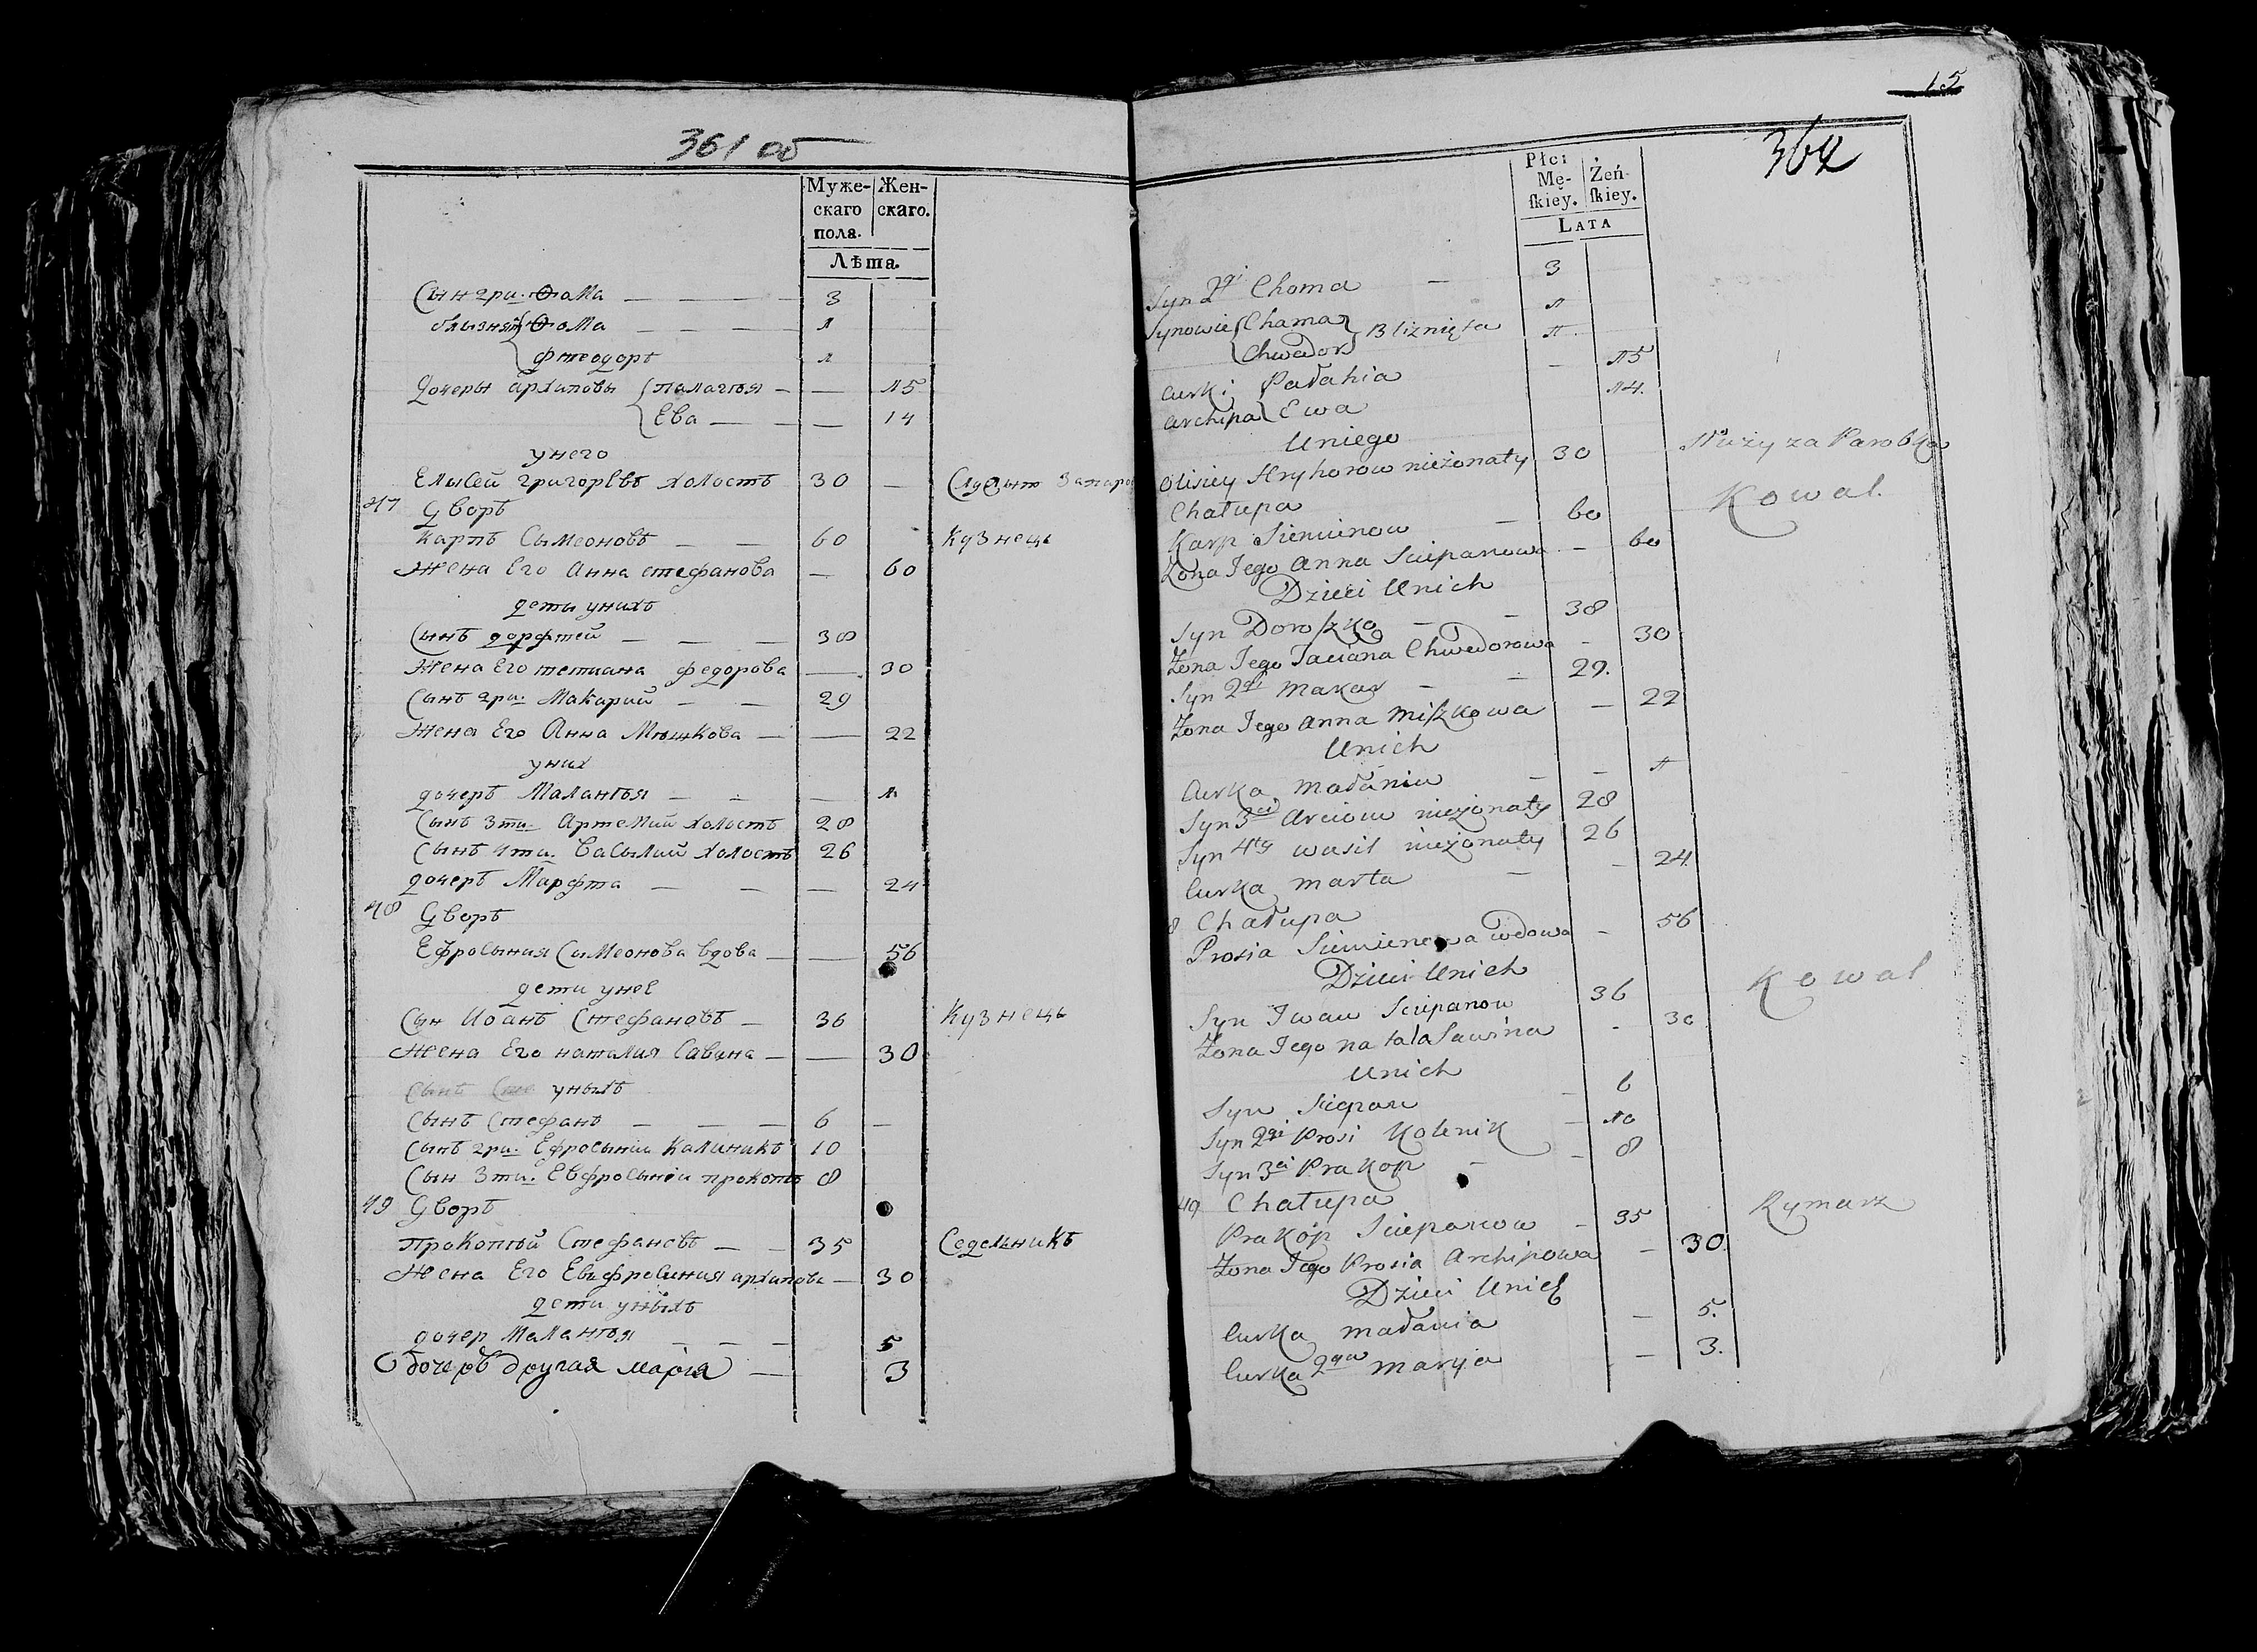 361 об
Муже- Жен-
скаго скаго.
пола.
Лѣта.
Сын 2ри. Фома — — — — 3
близнят Фома — — — — 1
Феодоръ 1
Дочеры Архиповы палагея — — 15
Ева — — — 14
у него
Елысей григоревъ холостъ 30 —
47 Дворъ
Карпъ Сымеоновъ — — 60 Кузнецъ
Жена Его Анна стефанова — 60
дети унихъ
Сынъ дорфтей — — — 38
Жена Его тетиана федорова — 30
Сынъ 2ри. Макарий — — 29
Жена Его Анна Мишкова — — 22
уних
дочеръ Малангея — — — 1
Сынъ 3ти. Артемий холостъ 28
Сынъ 4ти. Васылий холостъ 26
дочеръ Марфта — — — 24
48 Дворъ
Ефросыния Сымеонова вдова — — 56
дети унеё
Сын Иоанъ Стефановъ — 36 Кузнецъ
Жена Его наталия Савина — — 30
уныхъ
Сынъ Стефанъ — — — 6 —
Сынъ 2ри. Ефросынии Калиникъ 10
Сын 3ти. Евфросынии прокопъ 8
49 Дворъ
Прокопий Стефановъ — — 35 Седельникъ
Жена Его Евфросиния архипова — 30
дети уныхъ
дочер Малангея — — — 5
дочеръ другая мария — 3
15
362
Płci
Mę- Żeń-
ſkiey. ſkiey.
LATA
Syn 2gi Choma — 3
Synowie Chama 1
Chwedor Bliznięta 1
Curki Pałahia — 15
Archipa Ewa 14.
Uniego
Olisiey Hryhorow nieżonaty 30 Służy za Parobka
Chałupa
Karp Siemienow — 60 Kowal.
Żona Jego Anna Sciepanowa — 60
Dzieci Unich
Syn Doroſzko — — 38
Żona Jego Taciana Chwedorowa — 30
Syn 2gi Makar — — 29.
Żona Jego Anna Miſzkowa — 22
Unich
Curka Małania — — 1
Syn 3ci Arciom nieżonaty 28
Syn 4ty Wasil nieżonaty 26
Curka Marta — — 24
8 Chałupa
Prosia Siemienowa wdowa — 56
Dzieci Unich
Syn Iwan Sciepanow 36 Kowal
Żona Jego Natala Sawina — 30
Unich
Syn Sciepan — 6
Syn 2gi Prosi Kolenik — 10
Syn 3ci Prakop — — 8
49 Chałupa
Prakop Sciepanow — 35 Rymarz
Żona Jego Prosia Archipowa — 30.
Dzieci Unich
Curka Małania — 5.
Curka 2ga Maryia — 3.